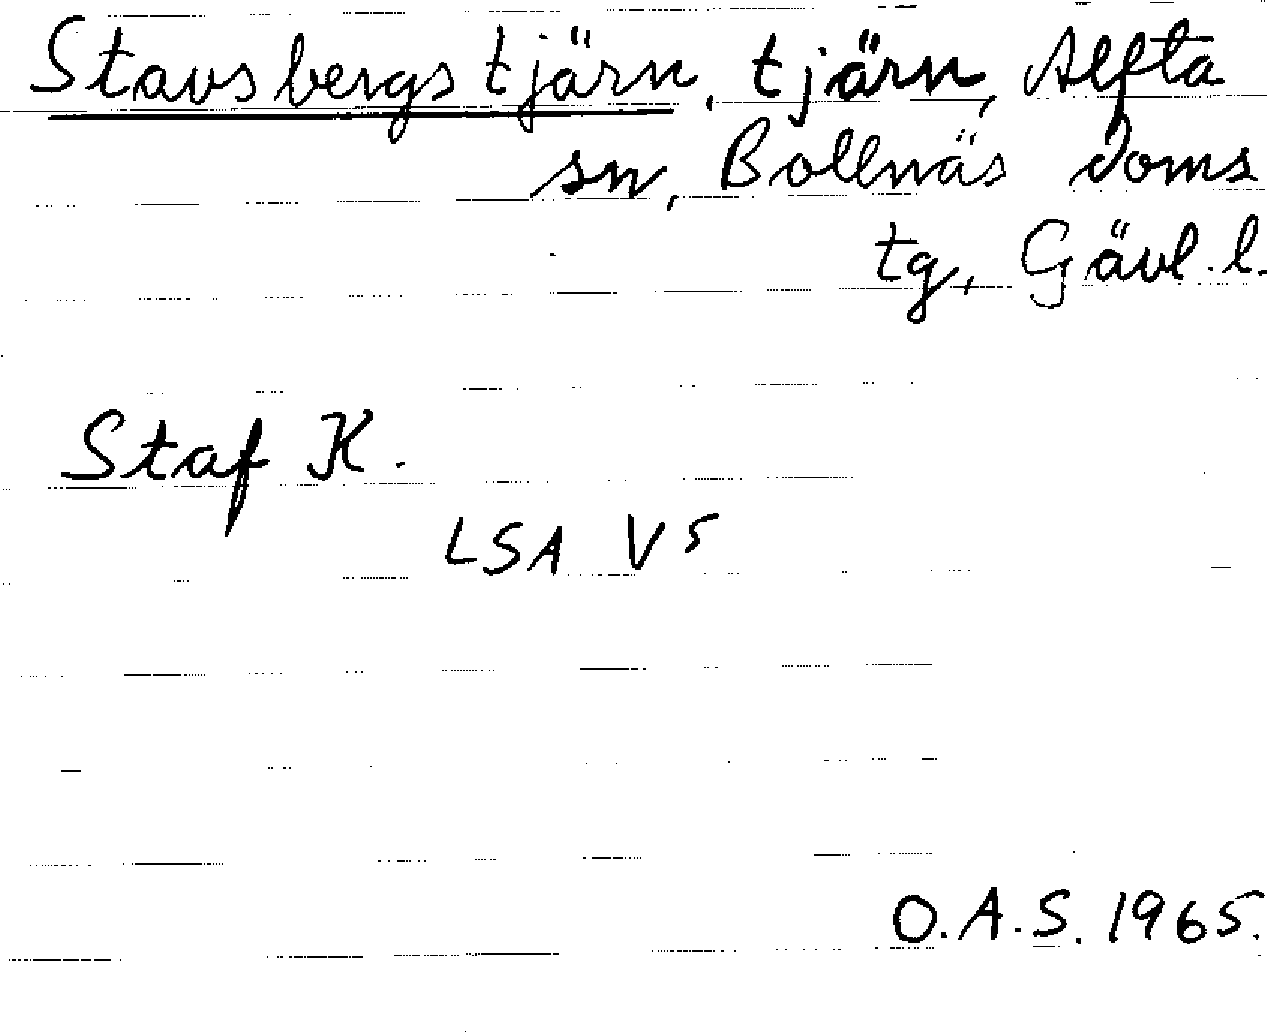 Stavsbergstjärn, tjärn, Alfta
sn, Bollnäs doms
tg, Gävl. l.
Staf K.
LSA V5
O.A.S. 1965.